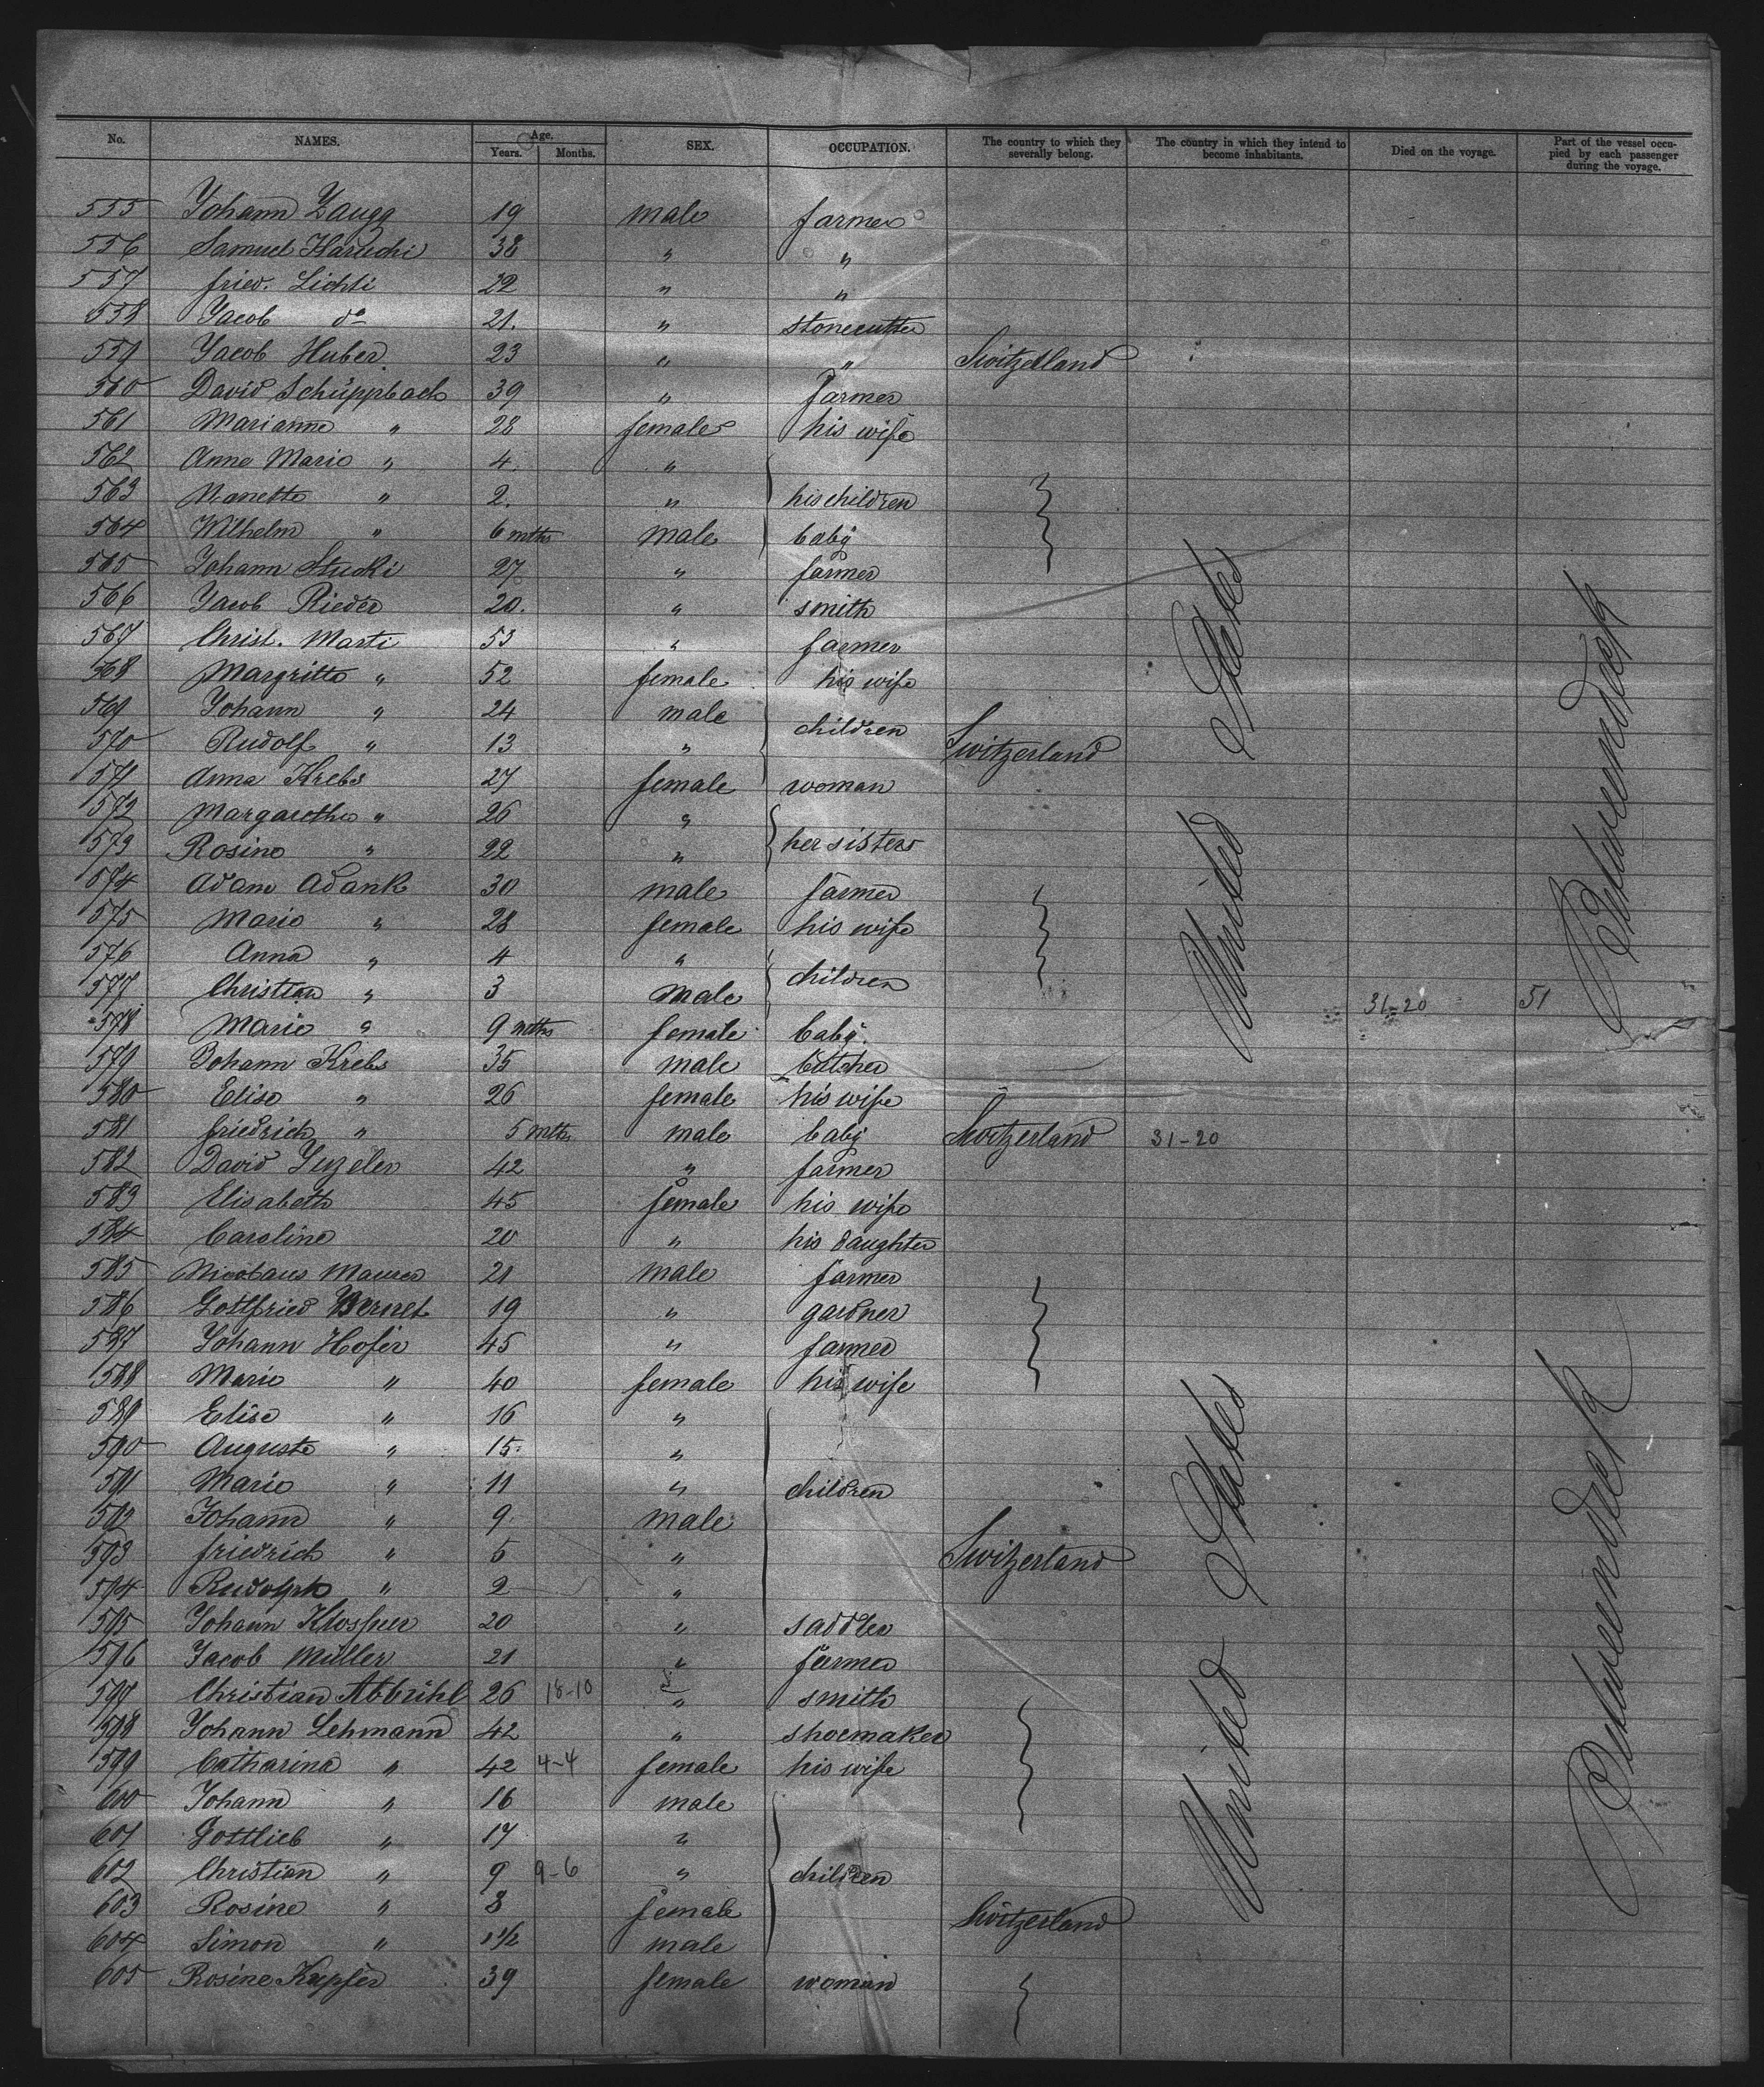 No. NAMES. Age. Years. Months. SEX. OCCUPATION. The country to which they severally belong. The country in which they intend to become inhabitants. Died on the voyage. Part of the vessel occupied by each passenger during the voyage.
555 Johann Zaugg 19 male farmer
556 Samuel 38 " "
557 fried. Lichti 22 " "
558 Jacob do 21. " stonecutter
559 Jacob Huber 23 " " Switzerland
560 David Schüppbach 39 " farmer
561 Marianne " 28 female his wife
562 Anne Marie " 4. "
563 Nanette " 2. " his children
564 Wilhelm " 6 mths male baby
565 Johann Stucki 27 " farmer
566 Jacob Rieder 20. " smith
567 Christ. Marti 53 " farmer
568 Margritte " 52 female his wife
569 Johann " 24 male children
570 Rudolf " 13 " Switzerland
571 Anna Krebs 27 female woman
572 Margarethe " 26 " her sisters
573 Rosine " 22 "
574 Adam Adank 30 male farmer
575 Marie " 28 female his wife
576 Anna " 4 " children
577 Christian " 3 male 31-20 51
578 Marie " 9 mths female baby.
579 Johann Krebs 35 male butcher
580 Elise " 26 female his wife
581 friedrich " 5 mths male baby Switzerland 31-20
582 David 42 " farmer
583 Elisabeth 45 female his wife
584 Caroline 20 " his daughter
585 Nicolaus Maurer 21 male farmer
586 Gottfried Wernet 19 " gardner
587 Johann Hofer 45 " farmer
588 Marie " 40 female his wife
589 Elise " 16 "
590 Auguste " 15. "
591 Marie " 11 " children
592 Johann " 9. male
593 friedrich " 5 " Switzerland
594 Rudolph " 2 "
595 Johann 20 " saddler
596 Jacob Müller 21 " farmer
597 Christian Abbrihl 26 18-10 " smith
598 Johann Lehmann 42 " shoemaker
599 Catharina " 42 4-4 female his wife
600 Johann " 16 male
601 Gottlieb " 17 "
602 Christian " 9 9-6 " children
603 Rosine " 8 female Switzerland
604 Simon " 1 1/2 male
605 Rosine Kupfer 39 female woman
United States
United States
Betweendeck
Betweendeck